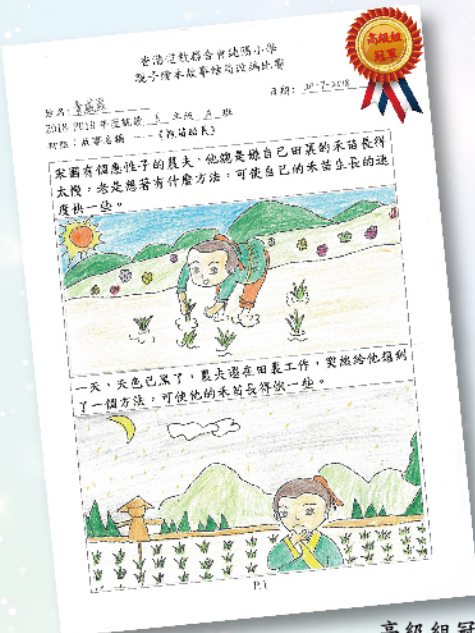 高級組
冠軍
香港道教聯合會純陽小學
親子繪本故事結局改編比賽
日期: 20-7-2018
姓名:
2018-2019 年度就讀 5 年級 A 班
初階:故事名稱 --- 《揠苗助長》
宋國有個急性子的農夫,他總是嫌自己田裏的禾苗長得
太慢,老是想著有什麼方法,可使自己的禾苗生長的速
度快一些。
一天,天色已黑了,農夫還在田裏工作,突然給他想到
了一個方法,可使他的禾苗長得快一些。
P.1
高級組冠